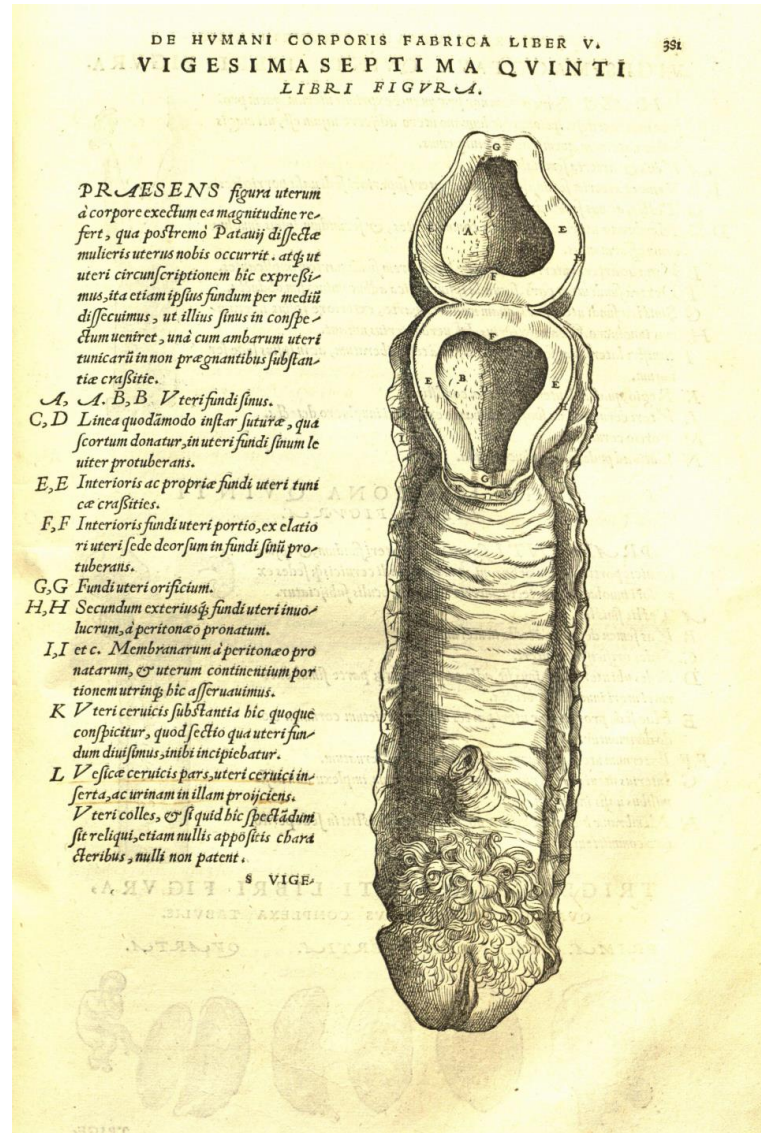 DE HVMANI CORPORIS FABRICA LIBER V. 381
VIGESIMASEPTIMA QVINTI
LIBRI FIGVRA.
PRAESENS figura uterum
à corpore exectum ea magnitudine re-
fert, qua postremò Patauij dissectæ
mulieris uterus nobis occurrit. atq; ut
uteri circunscriptionem hic expreßi-
mus, ita etiam ipsius fundum per mediũ
dissecuimus, ut illius sinus in conspe-
ctum ueniret, unà cum ambarum uteri
tunicarũ in non prægnantibus substan-
tiæ craßitie.
A, A. B, B Vteri fundi sinus.
C, D Linea quodãmodo instar suturæ, qua
scortum donatur, in uteri fundi sinum le
uiter protuberans.
E, E Interioris ac propriæ fundi uteri tuni
cæ craßities.
F, F Interioris fundi uteri portio, ex elatio
ri uteri sede deorsum in fundi sinũ pro-
tuberans.
G, G Fundi uteri orificium.
H, H Secundum exteriusq; fundi uteri inuo-
lucrum, à peritonæo pronatum.
I, I et c. Membranarum à peritonæo pro
natarum, & uterum continentium por
tionem utrinq; hic asseruauimus.
K Vteri ceruicis substantia hic quoque
conspicitur, quod sectio qua uteri fun-
dum diuisimus, inibi incipiebatur.
L Vesicæ ceruicis pars, uteri ceruici in-
serta, ac urinam in illam proijciens.
Vteri colles, & si quid hic spectãdum
sit reliqui, etiam nullis appositis chara
cteribus, nulli non patent.
§ VIGE-
G
A
E
H
F
F
E
B
E
H
G
K
I
I
L